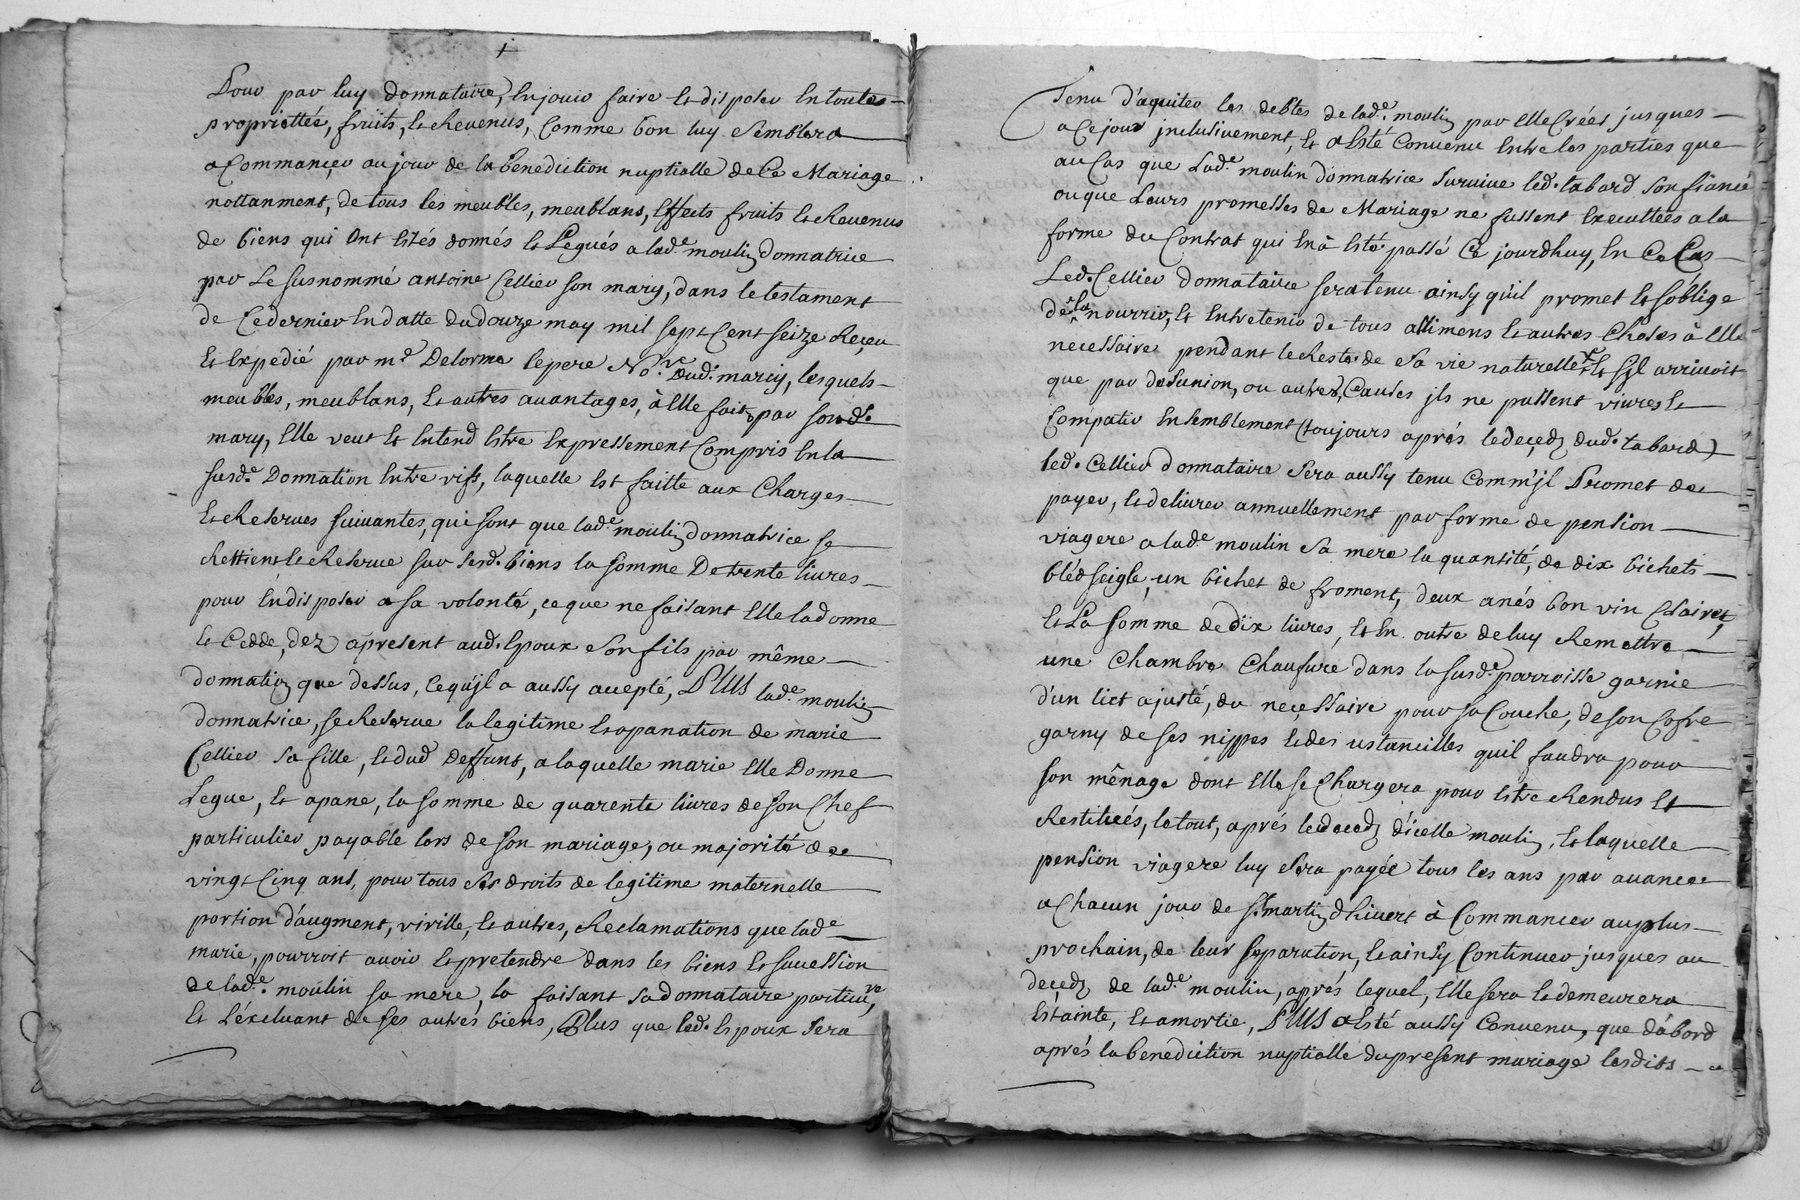 Pour par luy donnataire, en jouir faire et disposer en toutes
proprietées, fruits, et Revenus, Comme bon luy semblera
a Commançer au jour de la benediction nuptialle de Ce Mariage
nottanment, de tous les meubles, meublans, Effects fruits et Revenus
de biens qui ont étés donnés et Legués a lade. moulin donnatrice
par Le susnommé antoine Cellier son mary, dans le testament
de Ce dernier En datte du douze may mil sept Cent seize Reçeu
et Expedié par me. Delorme le pere Nore. dud. marcy, lesquels
meubles, meublans, et autres auantages, à Elle faits par sond.
mary, Elle veut et Entend Estre Expressement Compris En la
susde. Donnation Entre vifs, laquelle Est faitte aux Charges
et Reserues suiuantes, qui sont que lade. moulin donnatrice se
Rettient et Reserue sur sesd. biens la somme De trente liures
pour En disposer a sa volonté, ce que ne faisant Elle la donne
et Cedde, dez apresent aud. Epoux son fils par même
donnation que dessus, Ce qu'jl a aussy accepté, PLUS lade. moulin
donnatrice, se Reserue la legitime et apanation de marie
Cellier sa fille, et dud Deffunt, a laquelle marie Elle Donne
Legue, et apane, la somme de quarente liures de son Chef
particulier payable lors de son mariage, ou majorité de
vingt Cinq ans, pour tous ses droits de legitime maternelle
portion d'augment, virille, et autres, Reclamations que lade.
marie, pourroit auoir et pretendre dans les biens et sucession
de lade. moulin sa mere, la faisant sa donnataire particure,
et L'éxcluant de ses autres biens, Plus que led. Epoux sera
Tenu d'aquiter les debtes de lade. moulin par elle Créés jusques
a Ce jour inclusiuement, et a Esté Conuenu Entre les parties que
au Cas que Lade. moulin donnatrice suruiue led. tabard son fiancé
ou que Leurs promesses de Mariage ne fussent Executtées a la
forme du Contrat qui En à Esté passé Ce jourdhuy, En Ce Cas
Led. Cellier donnataire sera tenu ainsy qu'il promet et s'oblige
de la nourrir, et Entretenir de tous allimens et autres Choses à Elle
necessaire pendant le Reste de sa vie naturelle, et sjl arriuoit
que par desunion, ou autres Causes jls ne pussent viures et
Compatir Ensemblement (toujours aprés le deçedz dud. tabard)
led. Cellier donnataire sera aussy tenu Comm'jl Promet de
payer, et deliurer annuellement par forme de pension
viagere a lade. moulin sa mere la quantité, de dix bichets
bléd seigle, un bichet de froment, deux anés bon vin Clairet,
et La somme de dix liures, et En outre de luy Remettre
une Chambre Chaufure dans la susde. parroisse garnie
d'un lict ajusté, du neçessaire pour sa Couche, de son Cofre
garny de ses nippes et des ustancilles quil faudra pour
son mênage dont Elle se Chargera pour Estre Rendus et
Restitués, le tout, aprés le deçedz d'icelle moulin, et laquelle
pension viagere luy sera payée tous les ans par auance
a Chacun jour de St. martin d'hiuert à Commancer au plus
prochain, de leur separation, et ainsy Continuer jusques au
deçedz de lade. moulin, aprés lequel, Elle sera et demeurera
Estainte, et amortie, PLUS a Esté aussy Conuenu, que d'abord
aprés la benediction nuptialle du present mariage lesdits